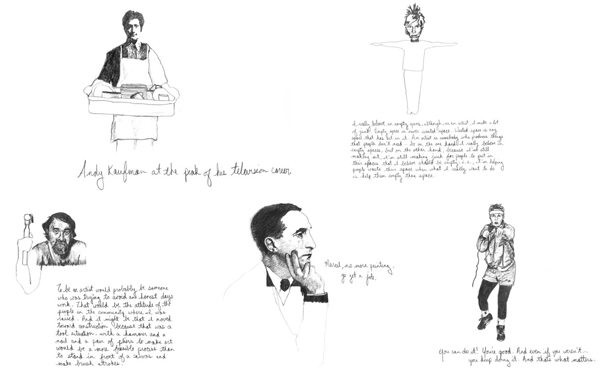 Andy Kaufman at the peak of his television career.
I really believe in empty spaces, although, as an artist, I make a lot
of junk. Empty space is never wasted space. Wasted space is any
space that has art in it. An artist is somebody who produces things
that people don't need
So on the one hand I really believe in
empty spaces, but on the other hand, because I'm still
making art, I'm still making junk for people to put in
their spaces that I believe should be empty. i.e., I'm helping
people waste their space when what I really want to do
is help them empty their space.
To be an artist would probably be someone
who was trying to avoid an honest days
work. That would be the attitude of the
people in the community where I was
raised. And it might be that I moved
toward construction because that was a
tool situation. with a hammer and a
nail and a pair of pliers to make art
would be a more feasible process than
to stand in front of a canvas and
make brush strokes.
Marcel, no more painting;
go get a job.
You can do it! You're good. And even if you weren't...
you keep doing it. And that's what matters.